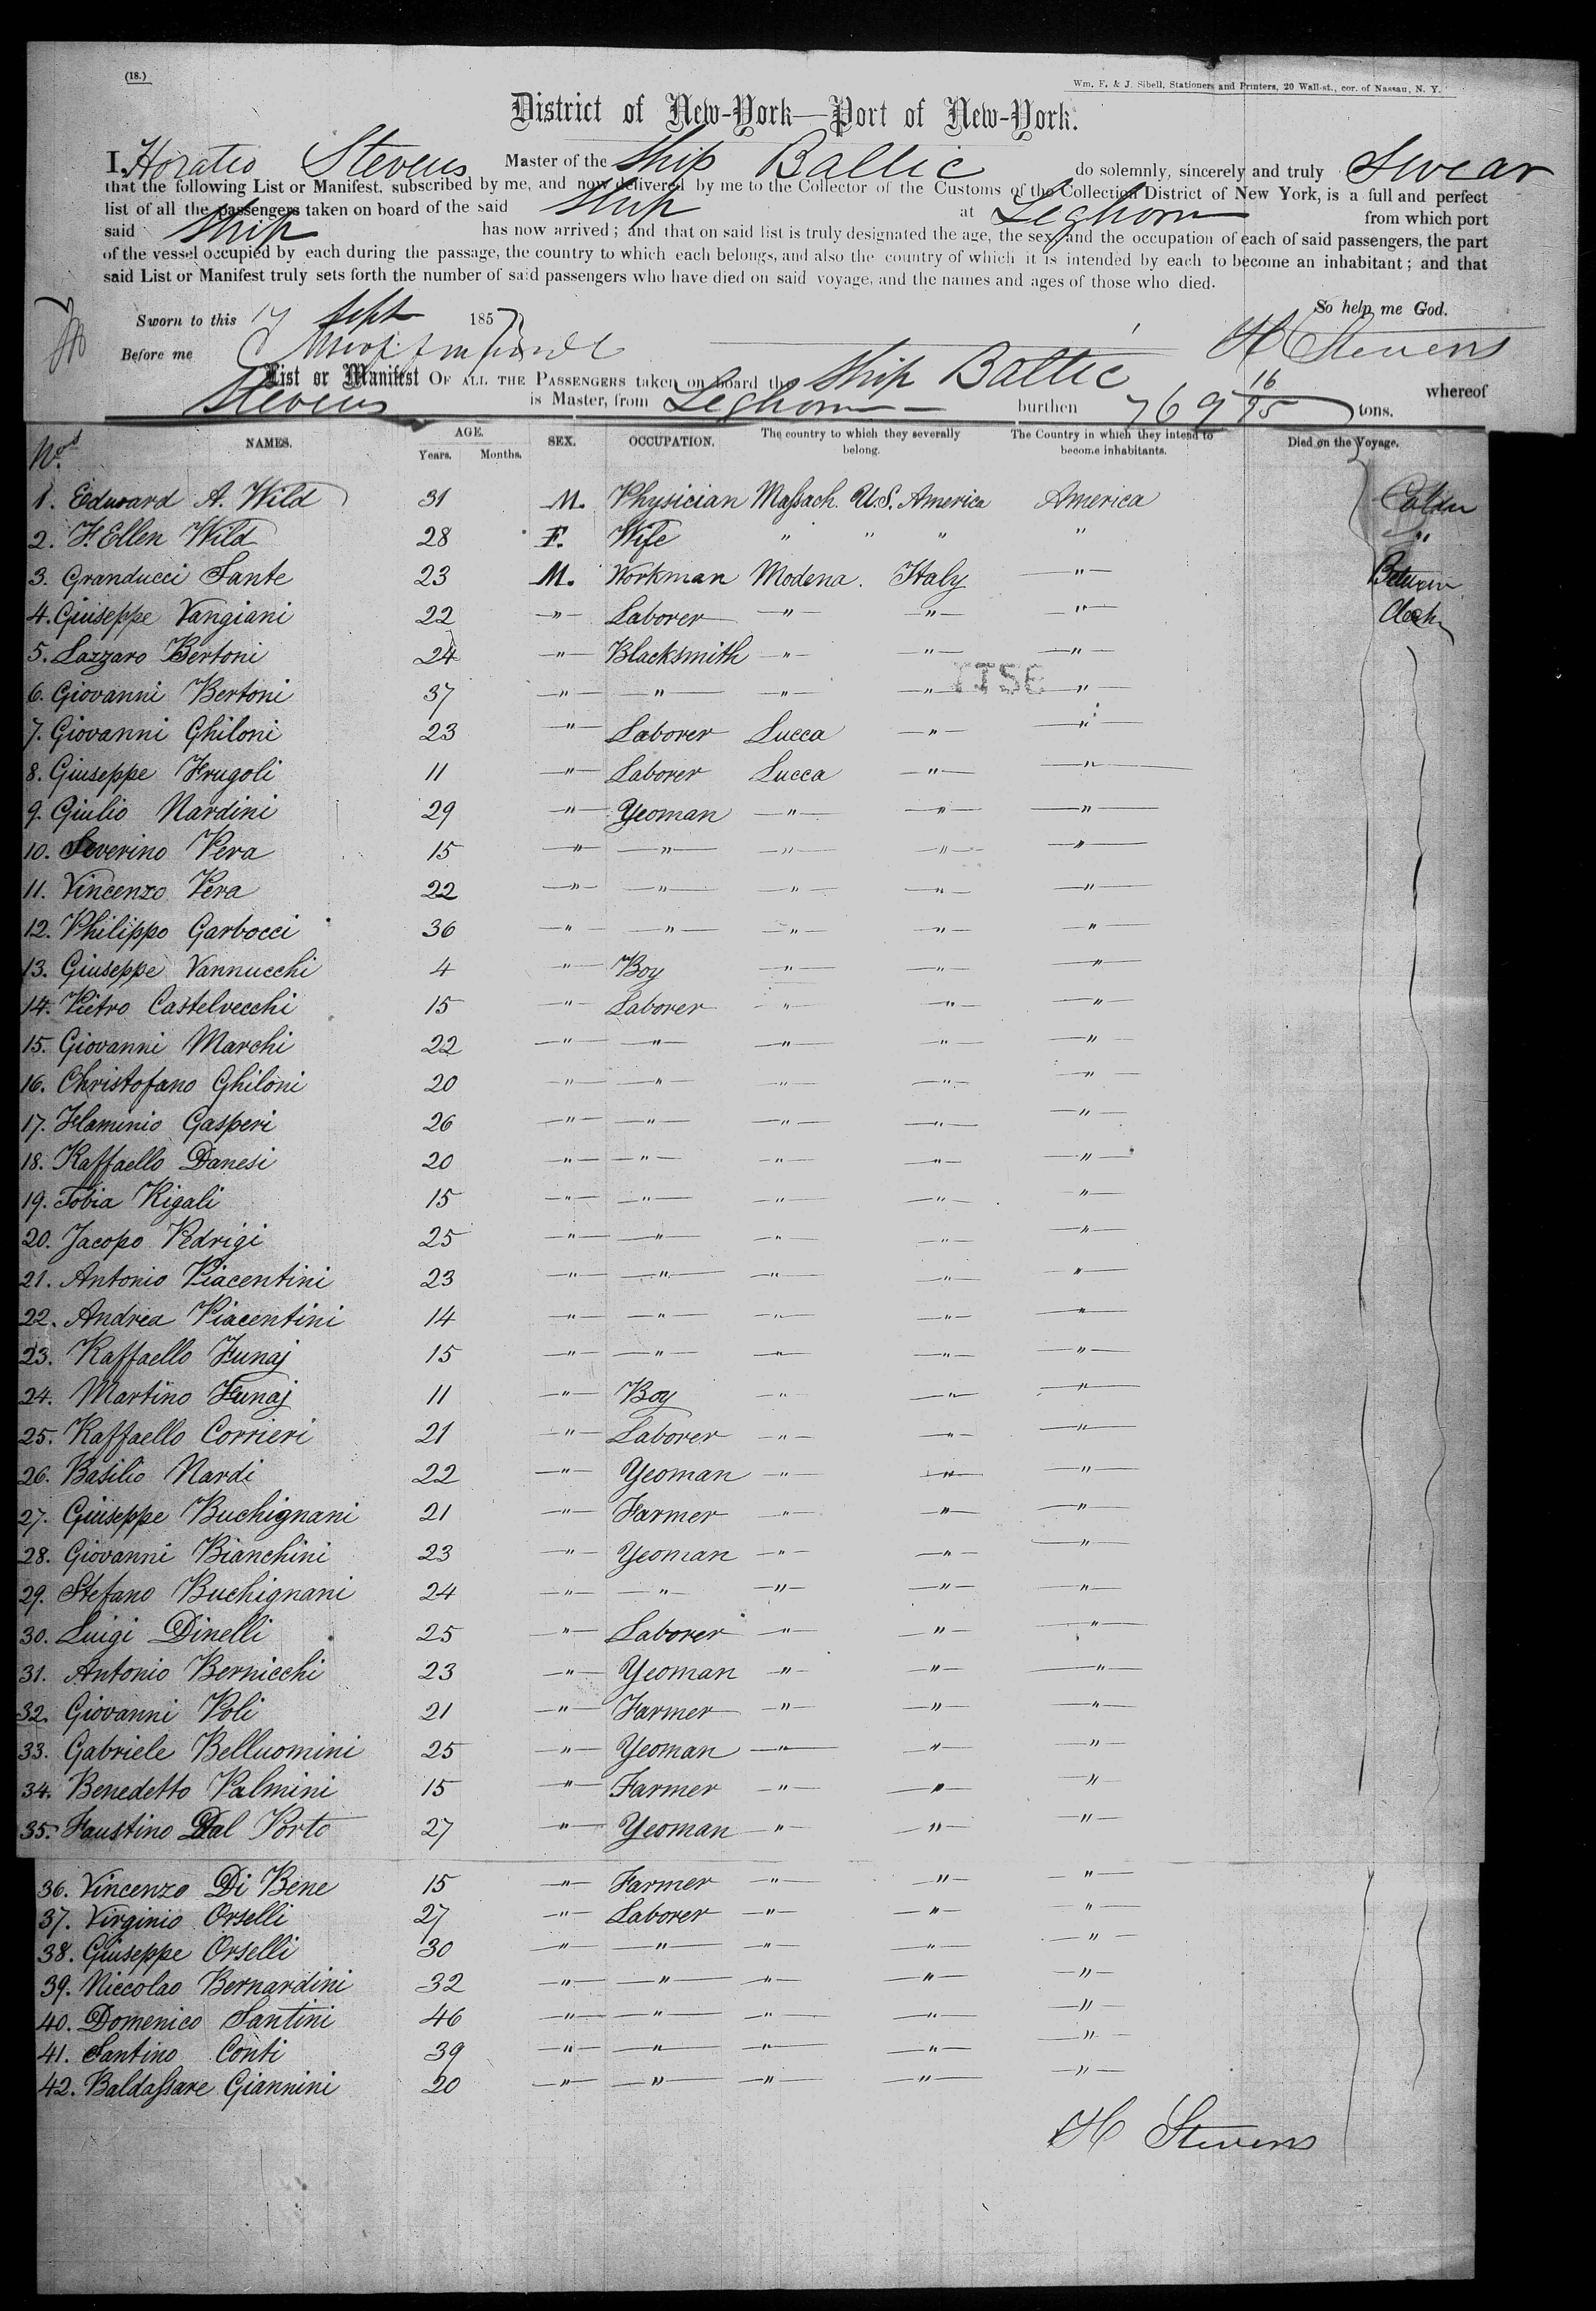 (18.)
Wm. F. & J. Sibell, Stationers and Printers, 20 Wall-st., cor. of Nassau, N. Y.
District of New-York—Port of New-York.
I, Horatio Stevens Master of the Ship Baltic do solemnly, sincerely and truly Swear
that the following List or Manifest, subscribed by me, and now delivered by me to the Collector of the Customs of the Collection District of New York, is a full and perfect
list of all the passengers taken on board of the said Ship at Leghorn from which port
said Ship has now arrived; and that on said list is truly designated the age, the sex, and the occupation of each of said passengers, the part
of the vessel occupied by each during the passage, the country to which each belongs, and also the country of which it is intended by each to become an inhabitant; and that
said List or Manifest truly sets forth the number of said passengers who have died on said voyage, and the names and ages of those who died.
So help me God.
Sworn to this 17 Sept 1857
H Stevens
Before me
List or Manifest OF ALL THE PASSENGERS taken on board the Ship Baltic whereof
Stevens is Master, from Leghorn burthen 769 16/95 tons.
Nos. NAMES. AGE. Years. Months. SEX. OCCUPATION. The country to which they severally belong. The Country in which they intend to become inhabitants. Died on the Voyage.
1. Edward A. Wild 31 M. Physician Massach. U.S. America America Cabin
2. F. Ellen Wild 28 F. Wife " " " " "
3. Granducci Sante 23 M. Workman Modena. Italy " Between
4. Giuseppe Vangiani 22 " Laborer " " " deck
5. Lazzaro Bertoni 24 " Blacksmith " " "
6. Giovanni Bertoni 37 " " " " "
7. Giovanni Ghiloni 23 " Laborer Lucca " "
8. Giuseppe Frugoli 11 " Laborer Lucca " "
9. Giulio Nardini 29 " Yeoman " " "
10. Severino Pera 15 " " " " "
11. Vincenzo Pera 22 " " " " "
12. Philippo Garbocci 36 " " " " "
13. Giuseppe Vannucchi 4 " Boy " " "
14. Pietro Castelvecchi 15 " Laborer " " "
15. Giovanni Marchi 22 " " " " "
16. Christofano Ghiloni 20 " " " " "
17. Flaminio Gasperi 26 " " " " "
18. Raffaello Danesi 20 " " " " "
19. Tobia Rigali 15 " " " " "
20. Jacopo Pedrigi 25 " " " " "
21. Antonio Piacentini 23 " " " " "
22. Andrea Piacentini 14 " " " " "
23. Raffaello Funaj 15 " " " " "
24. Martino Funaj 11 " Boy " " "
25. Raffaello Corrieri 21 " Laborer " " "
26. Basilio Nardi 22 " Yeoman " " "
27. Giuseppe Buchignani 21 " Farmer " " "
28. Giovanni Bianchini 23 " Yeoman " " "
29. Stefano Buchignani 24 " " " " "
30. Luigi Dinelli 25 " Laborer " " "
31. Antonio Bernicchi 23 " Yeoman " " "
32. Giovanni Poli 21 " Farmer " " "
33. Gabriele Belluomini 25 " Yeoman " " "
34. Benedetto Palmini 15 " Farmer " " "
35. Faustino Dal Porto 27 " Yeoman " " "
36. Vincenzo Di Bene 15 " Farmer " " "
37. Virginio Orselli 27 " Laborer " " "
38. Giuseppe Orselli 30 " " " " "
39. Niccolao Bernardini 32 " " " " "
40. Domenico Santini 46 " " " " "
41. Santino Conti 39 " " " " "
42. Baldassare Giannini 20 " " " " "
H Stevens